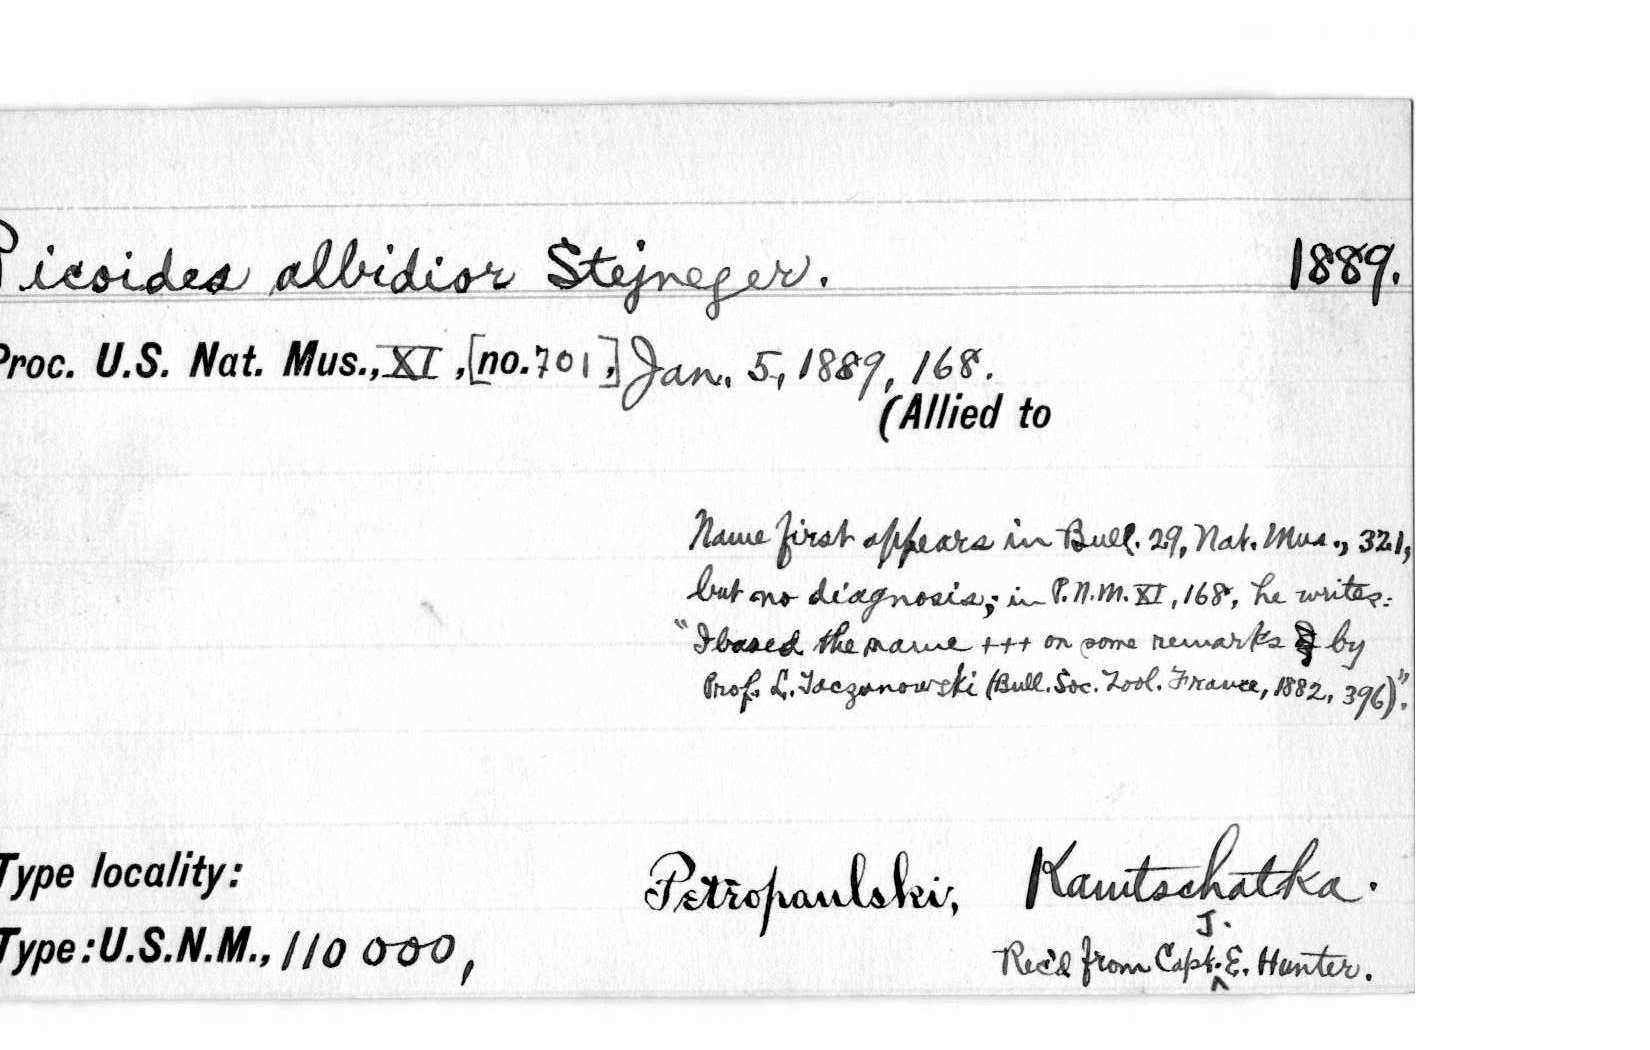 Picoides albidior Stejneger. 1889.
Proc. U.S. Nat. Mus., XI, [no. 701,] Jan. 5, 1889, 168.
(Allied to
Name first appears in Bull. 29, Nat. Mus., 321,
but no diagnosis; in P.N.M. XI, 168, he writes:
"I based the name +++ on some remarks by
Prof. L. Taczanowski (Bull. Soc. Zool. France, 1882, 396)".
Type locality: Petropaulski, Kamtschatka.
Type: U.S.N.M., 110 000, Rec'd from Capt. J. E. Hunter.